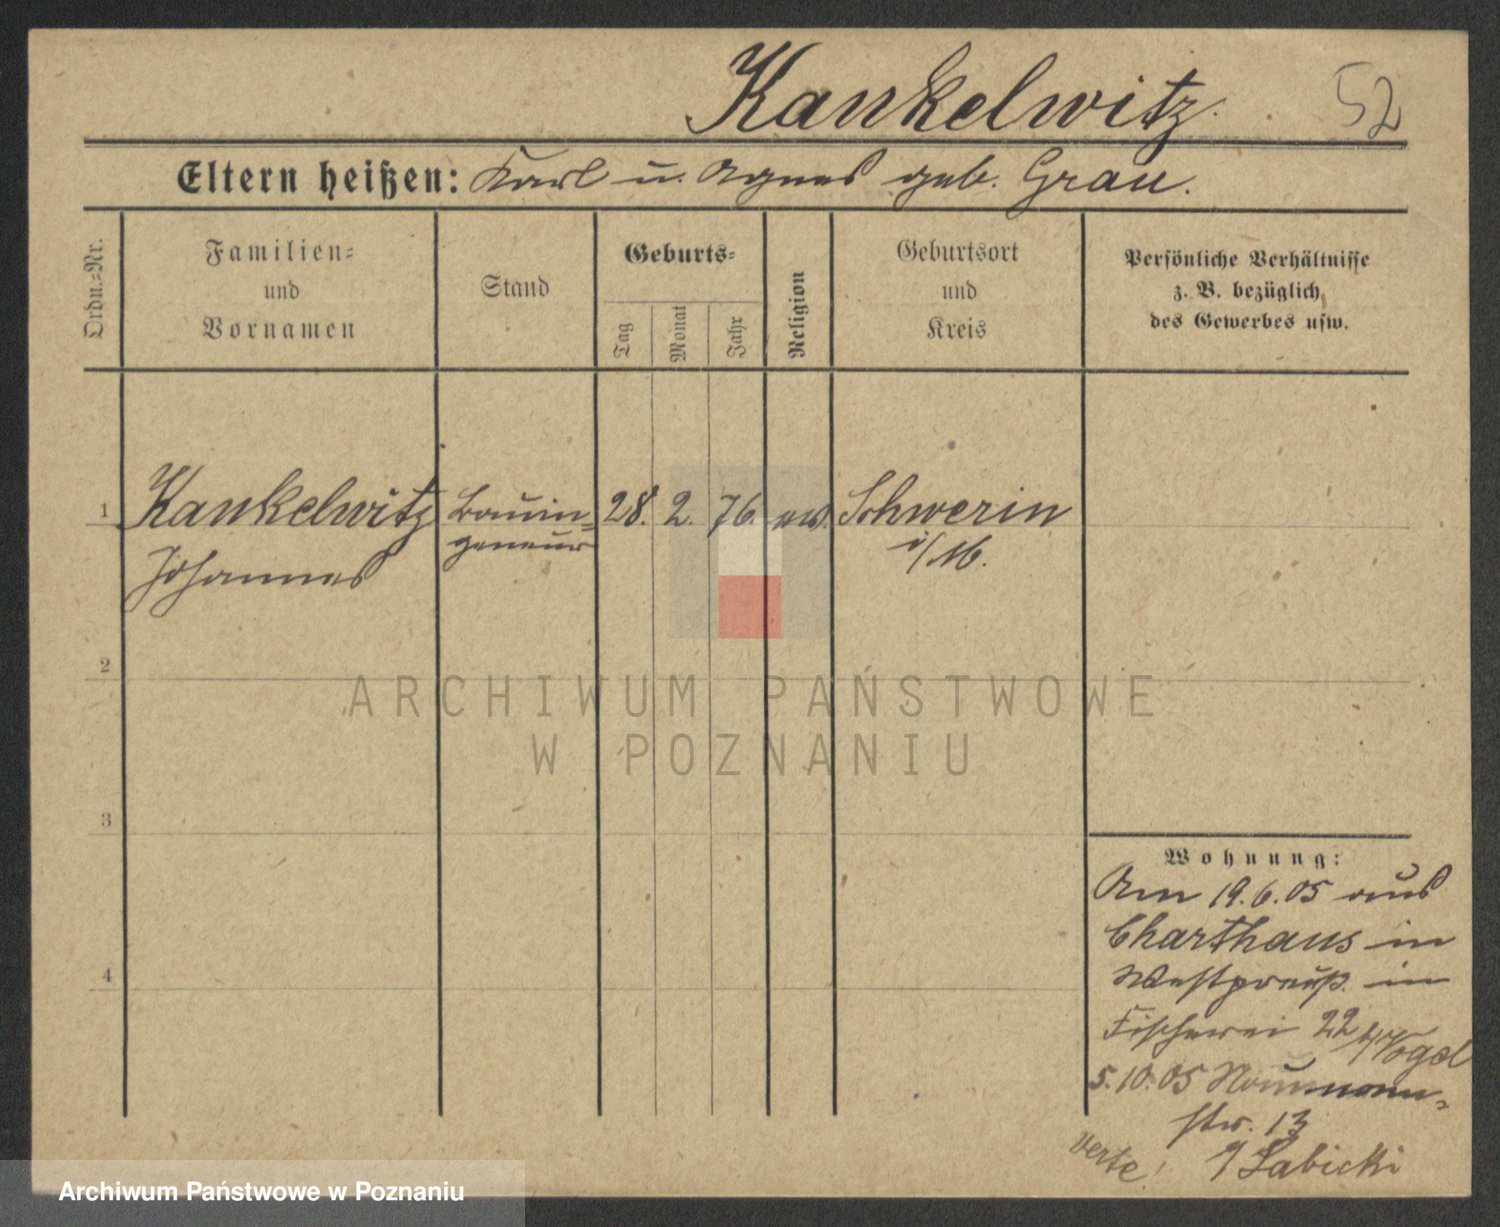 Kankelwitz.
52
Eltern heißen: Karl u. Agnes geb. Grau.
Ordn.-Nr.
Familien-
und
Vornamen
Stand
Geburts-
Tag
Monat
Jahr
Religion
Geburtsort
und
Kreis
Persönliche Verhältnisse
z. B. bezüglich
des Gewerbes usw.
1 Kankelwitz Bauin- 28. 2. 76. ev. Schwerin
Johannes geneur i/M.
2
ARCHIWUM PAŃSTWOWE
W POZNANIU
3
4
Wohnung:
Am 19.6.05 aus
Charthaus in
Westpreuß. in
Fischerei 22 b/Vogel
5.10.05 Naumann-
str. 13
b/ Labicki
Verte!
Archiwum Państwowe w Poznaniu